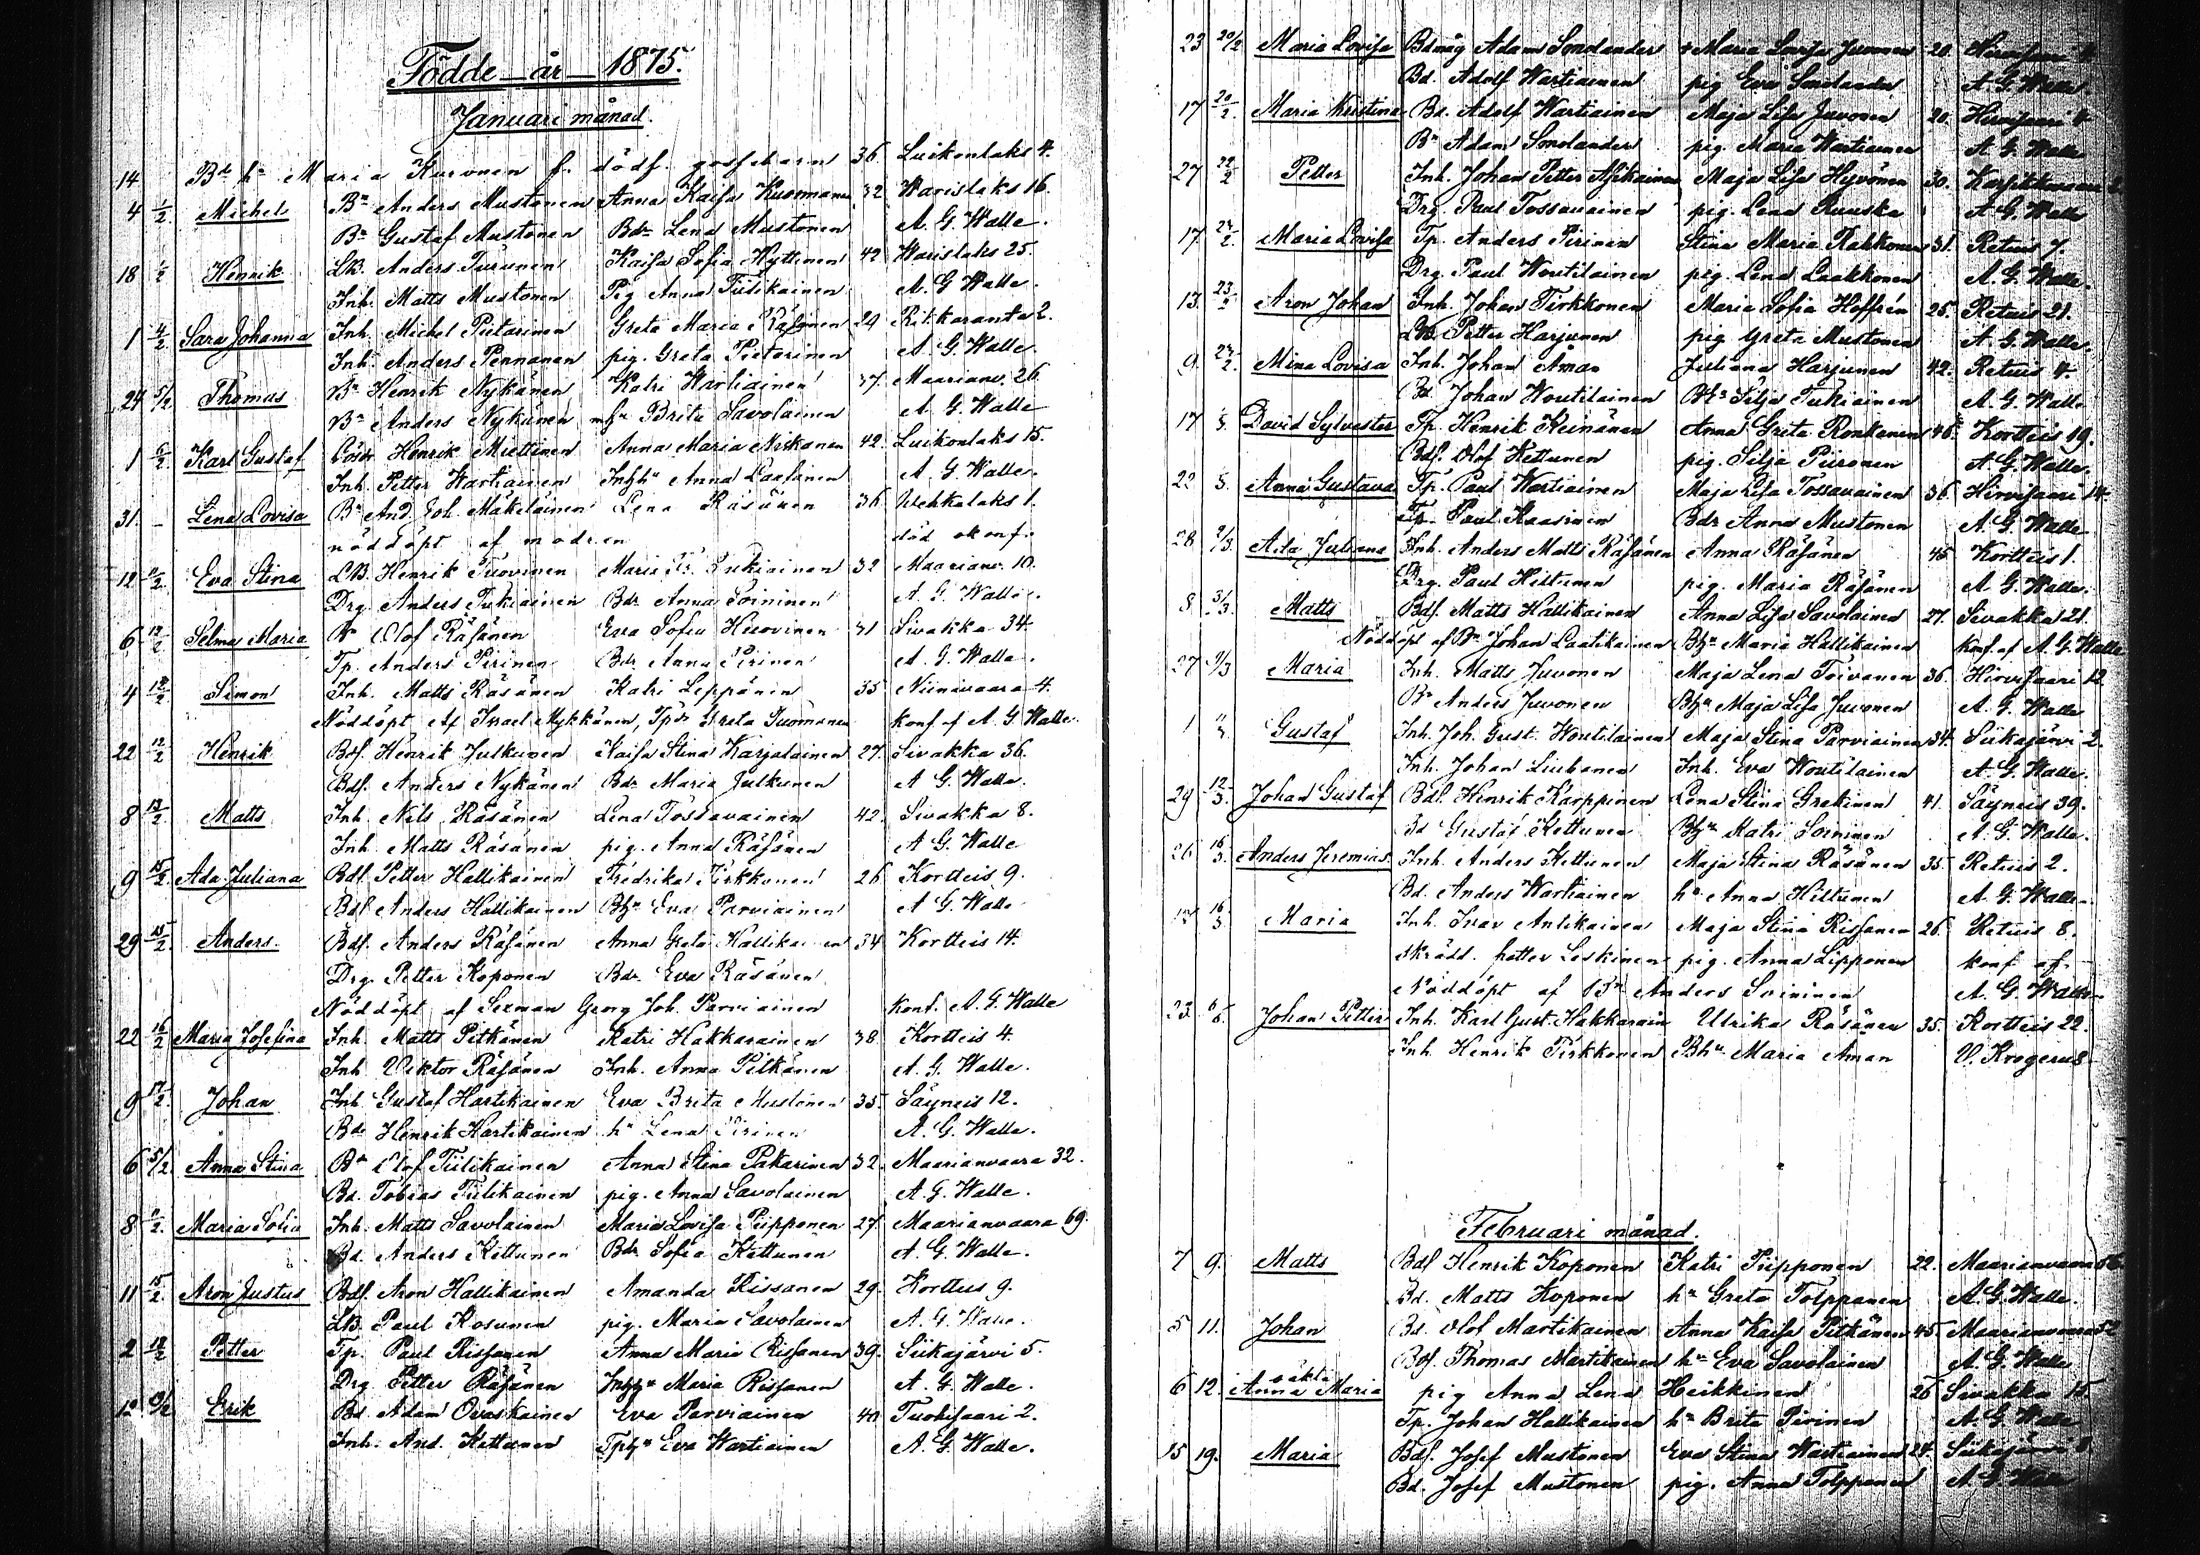 Födde år 1875.
Januari månad.
14 Bde hu Maria Kuronen f. dödf. gossebarn 36 Luikonlaks 4.
4 1/2 Michel Bn Anders Mustonen Anna Kaisa Kuosmanen 32 Warislaks 16.
Bn Gustaf Mustonen Bdr Lena Mustonen A. G. Walle.
18 1/2 Henrik LB. Anders Turunen Kaisa Sofia Hyttinen 42 Warislaks 25.
Inh. Matts Mustonen Pig Anna Tiilikainen A. G Walle.
1 4/2 Sara Johanna Inh. Michel Pietarinen Greta Maria Räsänen 29 Ritkaranta 2.
Inh. Anders Pennanen pig. Greta Pietarinen A. G. Walle.
24 5/2 Thomas Bn Henrik Nykänen Katri Wartiainen 37 Maarianv. 26
Bn Anders Nykänen hu Brita Savolainen A. G. Walle
1 6/2 Karl Gustaf Henrik Miettinen Anna Maria Niskanen 42. Luikonlaks 15.
Inh. Petter Wartiainen Inhhu Anna Laasonen A. G. Walle.
31. Lena Lovisa Bn And. Joh. Mäkeläinen Lena Räsänen 36 Wehkalaks 1.
nöddöpt af modren död okonf.
12 11/2 Eva Stina LB. Henrik Tuovinen Maria Tukiainen 32 Maarianv. 10.
Drg. Anders Tukiainen Bdr Anna Soininen A. G. Walle.
6 12/2 Selma Maria Bn Olof Räsänen Eva Sofia Hirvonen 31 Sivakka 34.
Tp. Anders Pirinen Bdr Anna Pirinen A. G. Walle.
4 12/2 Simon Inh. Matts Räsänen Katri Leppänen 35 Niinivaara 4.
Nöddöpt af Israel Mykkänen, Tpdr Greta Tuomanen konf af A. G Walle.
22 12/2 Henrik Bdf. Henrik Julkunen Kaisa Stina Karjalainen 27. Sivakka 36.
Bdf. Anders Nykänen Bdr Maria Julkunen A G. Walle.
8 13/2 Matts Inh. Nils Räsänen Lena Tossavainen 42. Sivakka 8.
Inh. Matts Räsänen pig. Anna Räsänen A G. Walle
9 15/2 Ada Juliana Bdf. Petter Hallikainen Fredrika Tirkkonen 26 Kortteis 9.
Bdf. Anders Hallikainen Bhu Eva Parviainen A G. Walle
29 15/2 Anders. Bdf. Anders Räsänen Anna Greta Hallikainen 34 Kortteis 14.
Drg. Petter Koponen Bdr Eva Räsänen
Nöddöpt af Sexman Georg Joh. Parviainen konf. A. G. Walle
22 16/2 Maria Josefina Inh. Matts Pitkänen Katri Hakkarainen 38 Kortteis 4.
Inh Viktor Räsänen Inh. Anna Pitkänen A. G. Walle.
9 17/2 Johan Inh Gustaf Hartikainen Eva Brita Mustonen 35. Säyneis 12.
Bdr Henrik Hartikainen hu Lena Pirinen A. G. Walle.
6 5/2 Anna Stina Bn Olof Tiilikainen Anna Stina Pakarinen 32. Maarianvaara 32.
Bd. Tobias Tiilikainen pig. Anna Savolainen A. G. Walle.
8 11/2 Maria Sofia Inh. Matts Savolainen Maria Lovisa Piipponen 27 Maarianvaara 69.
Bd. Anders Kettunen Bdr Sofia Kettunen A. G. Walle.
11 15/2 Aron Justus Bdf. Aron Hallikainen Amanda Rissanen 29. Kortteis 9.
LB. Paul Kosunen pig. Maria Savolainen A. G. Walle.
2 18/2 Petter Tp. Paul Rissanen Anna Maria Rissanen 39. Siikajärvi 5.
Drg Petter Räsänen Inhhu Maria Rissanen A. G. Walle.
12 19/2 Erik Bd. Adam Ovaskainen Eva Parviainen 40 Tuohisaari 2.
Inh. And. Kettunen Tphu Eva Wartiainen A. G. Walle.
23 20/2 Maria Lovisa Bdmåg Adam Smolander Maria Lovisa Juvonen 20. Hirvisaari 4
Bd. Adolf Wartiainen pig Eva Smolander A. G. Walle.
17 20/2. Maria Kristina Bd. Adolf Wartiainen Maja Lisa Juvonen 20. Hirvisaari 4
Bn Adam Smolander pig. Maria Wartiainen A. G. Walle
27 22/2 Petter Inh. Johan Petter Asikainen Maja Lisa Hyvönen 30.
Drg. Paul Tossavainen pig. Lena Ruuska A. G. Walle
17 22/2. Maria Lovisa Tp. Anders Pirinen Stina Maria Rakkonen 31. Retuis 7.
Drg. Paul Woutilainen pig. Lena Laakkonen A. G. Walle.
13. 23/2 Aron Johan Inh. Johan Tirkkonen Maria Sofia Hoffrén 25. Retuis 21.
LB. Petter Harjunen pig Greta Mustonen A. G. Walle.
9. 27/2. Mina Lovisa Inh. Johan Åman Juliana Harjunen 42. Retuis 4.
Bd. Johan Woutilainen Bhu Silja Tukiainen A. G. Walle
17 David Sylvester Tp. Henrik Keinänen Anna Greta Ronkanen 46. Kortteis 19.
Bdf. Olof Kettunen pig. Silja Piironen A. G. Walle.
22 Anna Gustava Tp. Paul Wartiainen Maja Lisa Tossavainen 36. Hirvisaari 14.
Tp. Paul Kaasinen Bdr Anna Mustonen A. G. Walle
28 2/3. Ada Juliana Inh. Anders Matts Räsänen Anna Räsänen 45 Kortteis 1.
Drg. Paul Hiltunen pig. Maria Räsänen A. G. Walle.
8 3/3. Matts Bdf. Matts Hallikainen Anna Lisa Savolainen 27. Sivakka 21.
Nöddöpt af Bn Johan Laatikainen Bhu Maria Hallikainen konf. af A. G. Walle
27 9/3 Maria Inh. Matts Juvonen Maja Lena Toivanen 36. Hirvisaari 12
Bn Anders Juvonen Bhu Maja Lisa Juvonen A. G. Walle
1 11/3 Gustaf Inh. Joh. Gust. Woutilainen Maja Stina Parviainen 34. Siikajärvi 2.
Inh. Johan Liukonen Inh. Eva Woutilainen A. G. Walle.
29 12/3. Johan Gustaf Bdf. Henrik Karppinen Lena Stina Grekinen 41. Säyneis 39.
Bd Gustaf Kettunen Bhu Katri Soininen A. G. Walle.
26 16/3. Anders Jeremias. Inh. Anders Kettunen Maja Stina Räsänen 35. Retuis 2.
Bd. Anders Wartiainen hu Anna Hiltunen A. G. Walle.
16/3 Maria Inh. Ivar Antikainen Maja Stina Rissanen 26. Retuis 8.
skrädd. Petter Leskinen pig. Anna Lipponen konf af
Nöddöpt af Bn Anders Soininen A. G. Walle
23 6/6. Johan Petter Inh. Karl Gust. Hakkarain Ulrika Räsänen 35. Kortteis 22.
Inh. Henrik Tirkkonen Bhu Maria Åman V. Krogerus
Februari månad.
7 9. Matts Bdf Henrik Koponen Katri Piipponen 22. Maarianvaara
Bd. Matts Koponen hu Greta Tolppanen A. G. Walle.
5 11. Johan Bd. Olof Martikainen Anna Kaisa Pitkänen 45. Maarianvaara 52
Bdf. Thomas Martikainen hu Eva Savolainen A. G. Walle
6 12. oäkta Anna Maria pig Anna Lena Heikkinen 26 Sivakka 15.
Tp. Johan Hallikainen hu Brita Pirinen A. G. Walle
15 19. Maria Bdf. Josef Mustonen Eva Stina Wartiainen 24. Siikajärvi 8
Bd. Josef Mustonen pig. Anna Tolppanen A. G. Walle